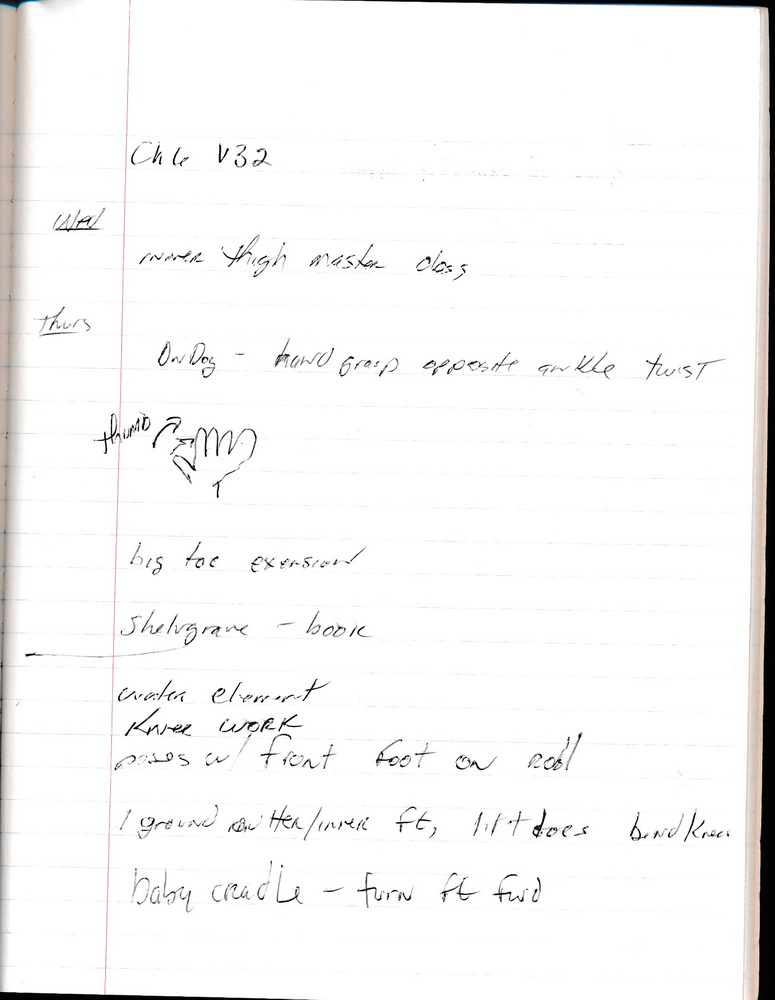 V32
Wed
inner thigh master class
Thurs
DnDog - hand grasp opposite ankle twist
thumb
big toe exension
- book
water element
Knee WORK
poses w/ front foot on roll
1 ground outter/inner ft, lift toes bend knee
baby cradle - turn ft fwd